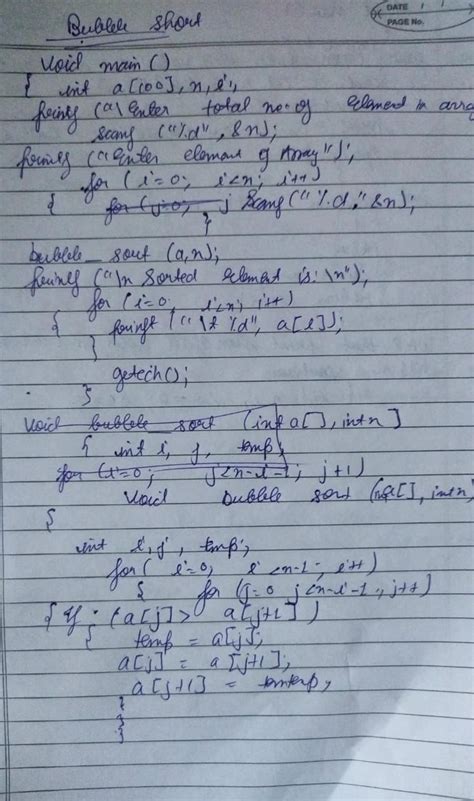 Bubble short
DATE / /
PAGE No.
void main ()
{ int a[100], n, i,
printf ("\Enter total no. of Element in array
scanf ("%d", &n);
printf ("Enter element of Array");
for (i=0; i<n; i++)
{ for (j=0; j Scanf ("%d," &n);
}
bubble_sort (a,n);
printf ("\n Sorted Element is: \n");
for (i=0; i<n; i++)
{ printf ("\t %d", a[i]);
}
getech();
}
void bubble sort (int a[], int n]
{ int i, j, temp,
for (i=0; j<n-i-1; j+1)
void bubble sort (int a[], int n)
{
int i, j, temp,
for( i=0; i<n-1; i++
{ for (j=0 j<n-i-1., j++)
{ if (a[j]> a[j+1])
{ temp = a[j];
a[j] = a[j+1];
a[j+1] =
}
}
}